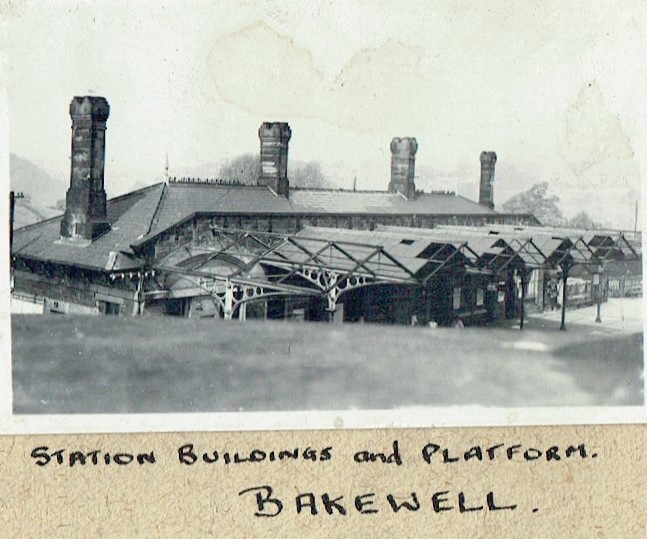 STATION BUILDINGS and PLATFORM.
BAKEWELL.